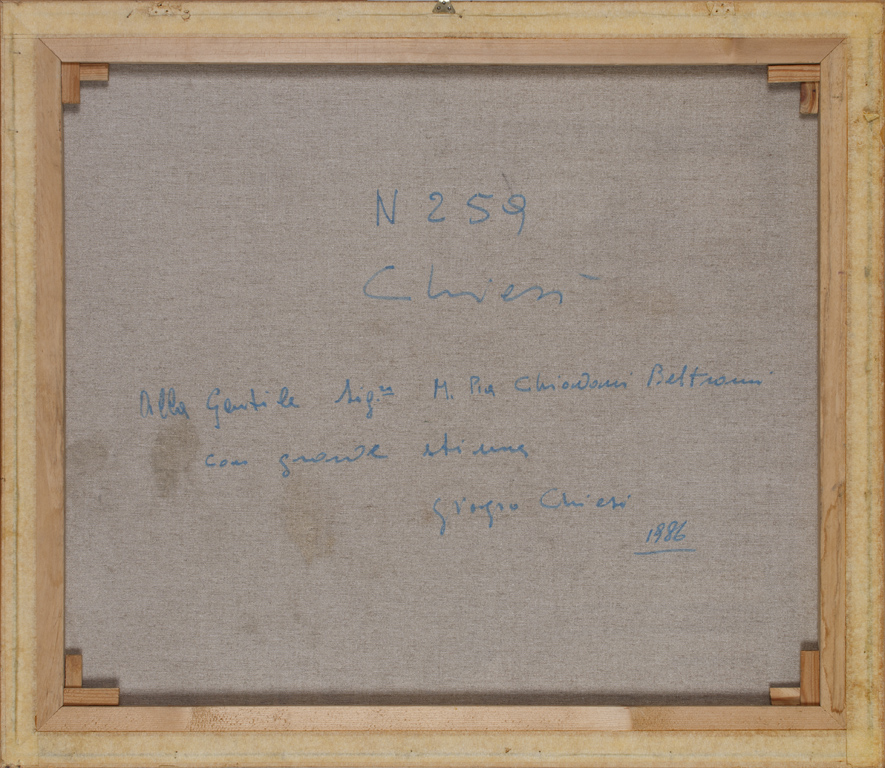 N 259
Chiesi
Alla Gentile Sig.ra M. Pia Chiodoni Beltrami
con grande stima
Giorgio Chiesi
1986